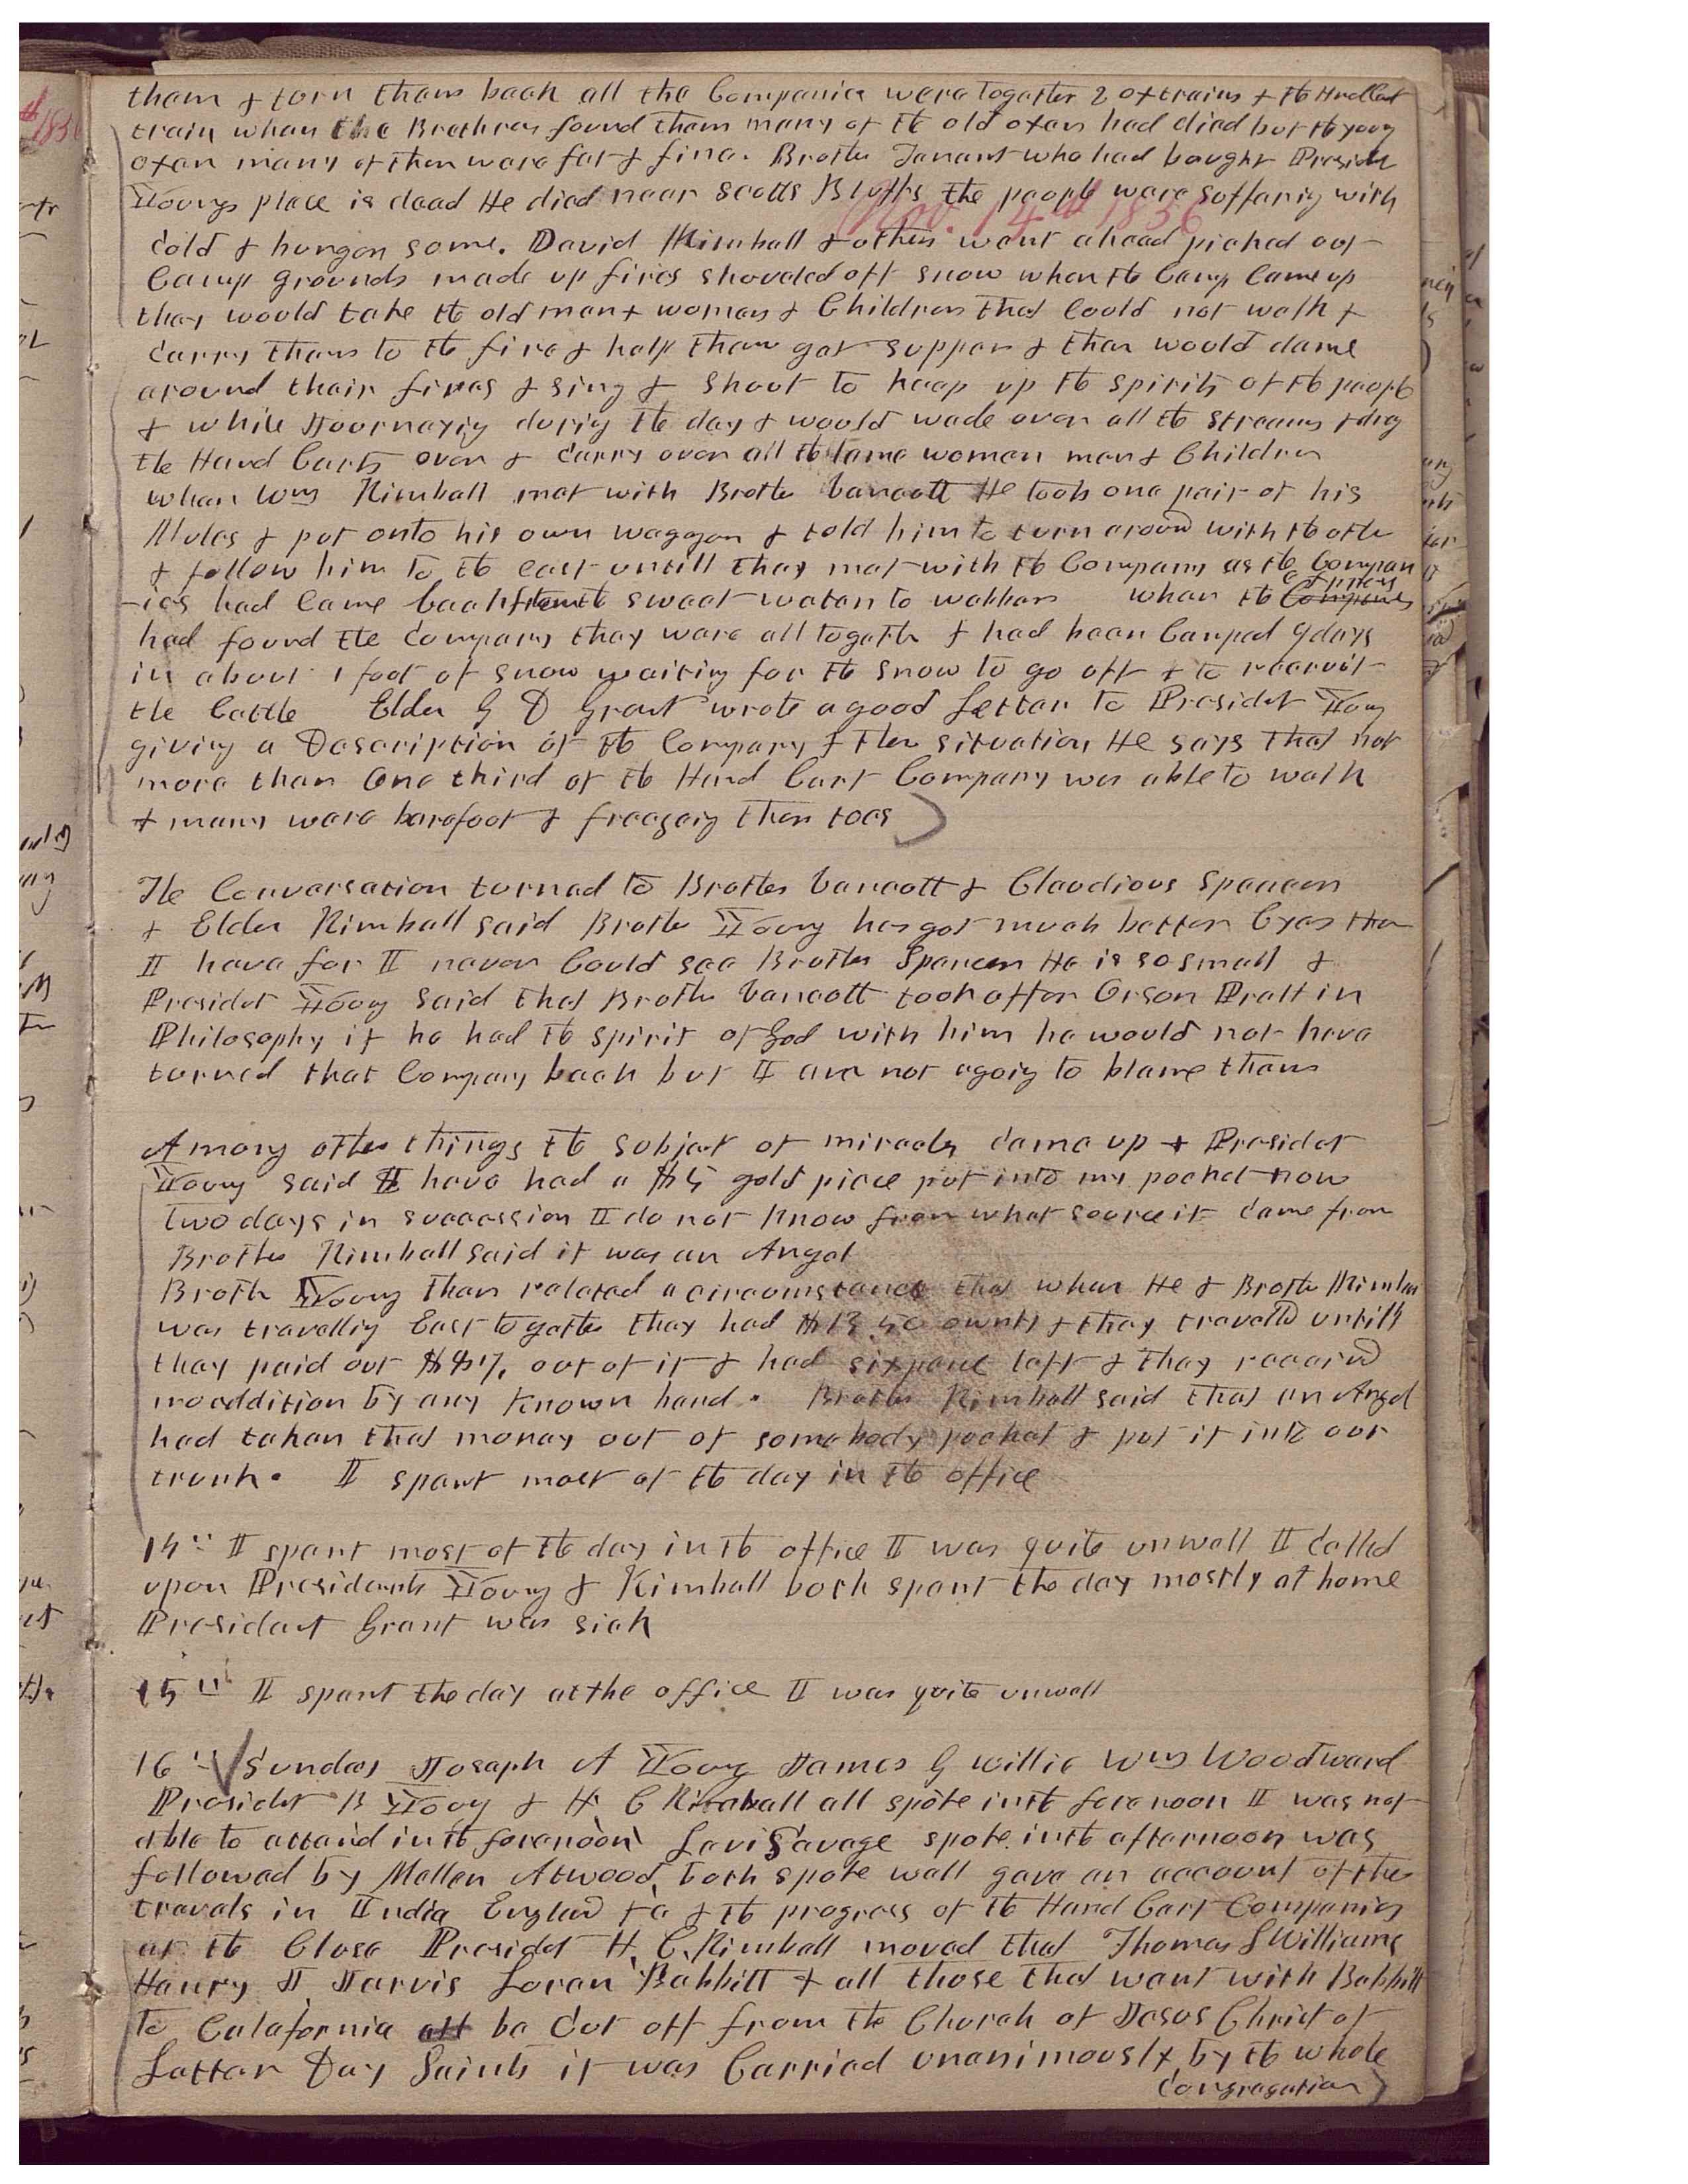 them & torn them back all the Companies were together 2 ox trains & the
train when the Brethren found them many of the old oxen had died but the young
oxen many of them ware fat & fine. Brother Tenant who had bought Presidet
Youngs place is dead He died near Scotts Bluffs the people ware suffering with
Nov. 14th 1856
Cold & hunger some. David Kimball & others went ahead picked out
Camp grounds made up fires shoveled off snow when the Camp Came up
they would take the old men & women & Children that Could not walk &
Carry them to the fire & help them get supper & then would dance
around their fires & sing & shout to keep up the spirits of the people
& while Journeying during the day & would wade over all the streams & drag
the Hand Carts over & Carry over all the lame women men & Children
when Wm Kimball met with Brother Vancott He took one pair of his
Mules & put onto his own waggon & told him to turn around with the other
& follow him to the east untill they met with the Company as the Compan
-ies had Came back from the sweet water to webber when the Express
had found the Company they ware all together & had been Camped 9 days
in about 1 foot of snow waiting for the snow to go off & to recruit
the Cattle Elder G D Grant wrote a good Letter to Presidet Young
giving a Description of the Company & their situation He says that not
more than One third of the Hand Cart Company was able to walk
& many ware barefoot & freezing their toes)
The Conversation turned to Brother Vancott & Claudious Spencer
& Elder Kimball said Brother Young has got much better Eyes than
I have for I never Could see Brother Spencer He is so small &
Presidet Young said that Brother Vancott took after Orson Pratt in
Philosophy if he had the spirit of God with him he would not have
turned that Company back but I am not agoing to blame them
Among other things the subject of miracles Came up & Presidet
Young said I have had a $5 gold piece put into my pocket now
two days in succession I do not know from what source it Came from
Brother Kimball said it was an Angel
Broth Young then related a circumstance that when He & Brother Kimball
was travelling East together they had $13.50 & they travelled untill
they paid out $87, out of it & had sixpence left & they received
no addition by any known hand. Brother Kimball said that an Angel
had taken that money out of somebody pocket & put it into our
trunk. I spent most of the day in the office
14th I spent most of the day in the office I was quite unwell I Called
upon Presidents Young & Kimball both spent the day mostly at home
President Grant was sick
15th I spent the day at the office I was quite unwell
16th Sunday Joseph A Young James G Willie Wm Woodward
Presidet B Young & H C Kimball all spoke in the forenoon I was not
able to attend in the forenoon Levi Savage spoke in the afternoon was
followed by Mellen Atwood, both spoke well gave an account of their
travels in India England &c & the progress of the Hand Cart Companies
at the Close Presidet H. C. Kimball moved that Thomas S Williams
Henry J Jarvis Loren Babbitt & all those that went with Babbitt
to Calafornia all be Cut off from the Church of Jesus Christ of
Latter Day Saints it was Carried unanimously by the whole
Congregation)